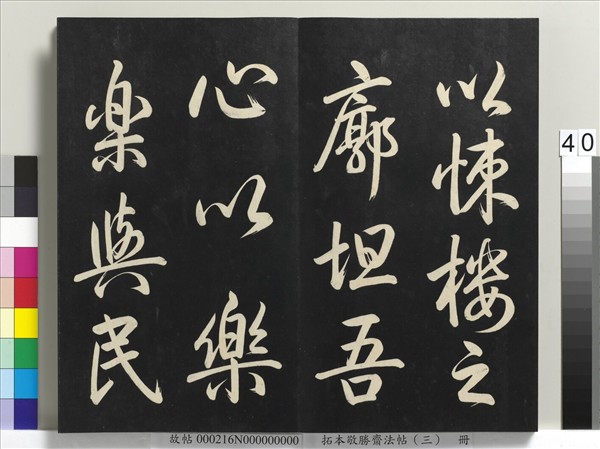 以悚樓之
廓坦吾
心以樂
楽與民
40
故帖 000216N000000000 拓本敬勝齋法帖（三） 冊